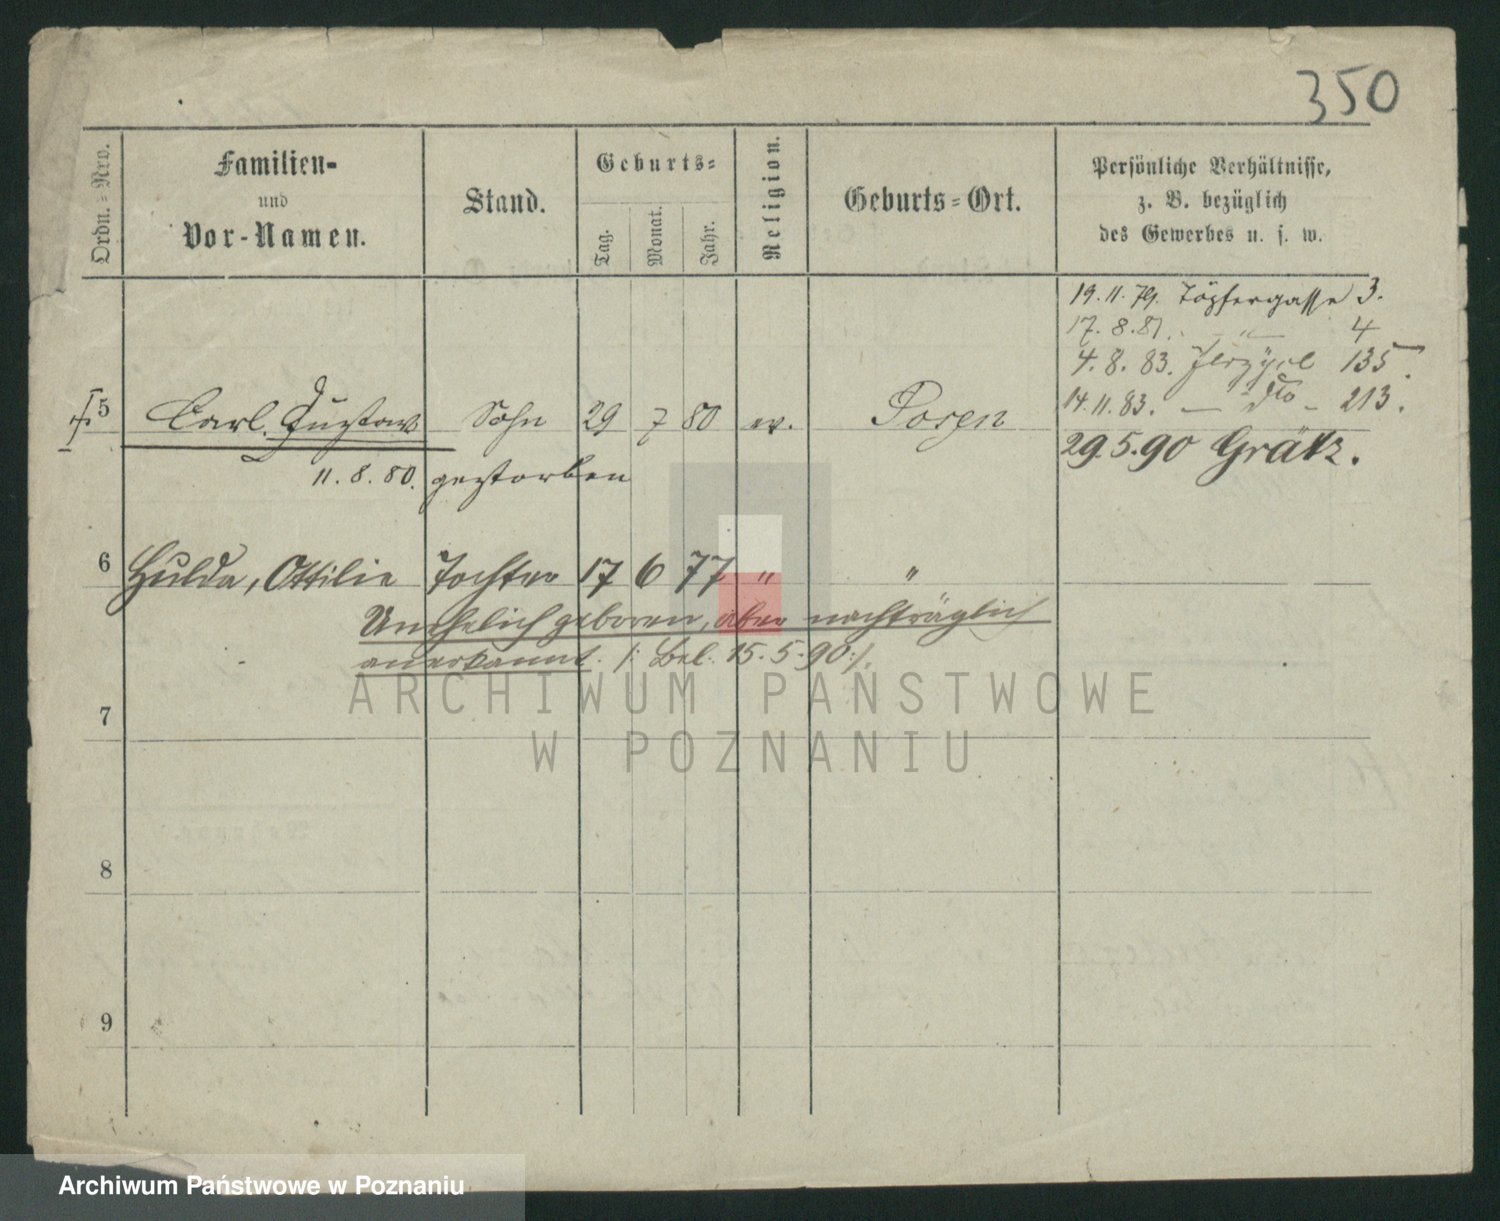 350
Ordn.-Nro.
Familien-
und
Vor-Namen.
Stand.
Geburts-
Tag.
Monat.
Jahr.
Religion.
Geburts-Ort.
Persönliche Verhältnisse,
z. B. bezüglich
des Gewerbes u. s. w.
19.11.79. Töpfergasse 3.
17.8.81. — " — 4
4.8.83. Jerzyce 135.
14.11.83. — dto - 213.
29.5.90 Grätz.
5 Carl Gustav Sohn 29 7 80 ev. Posen
11.8.80. gestorben
6 Hulda, Ottilie Tochter 17 6 77 " "
Unehelich geboren, aber nachträglich
anerkannt. /: Bel. 15.5.90 :/.
7
8
9
ARCHIWUM PAŃSTWOWE
W POZNANIU
Archiwum Państwowe w Poznaniu